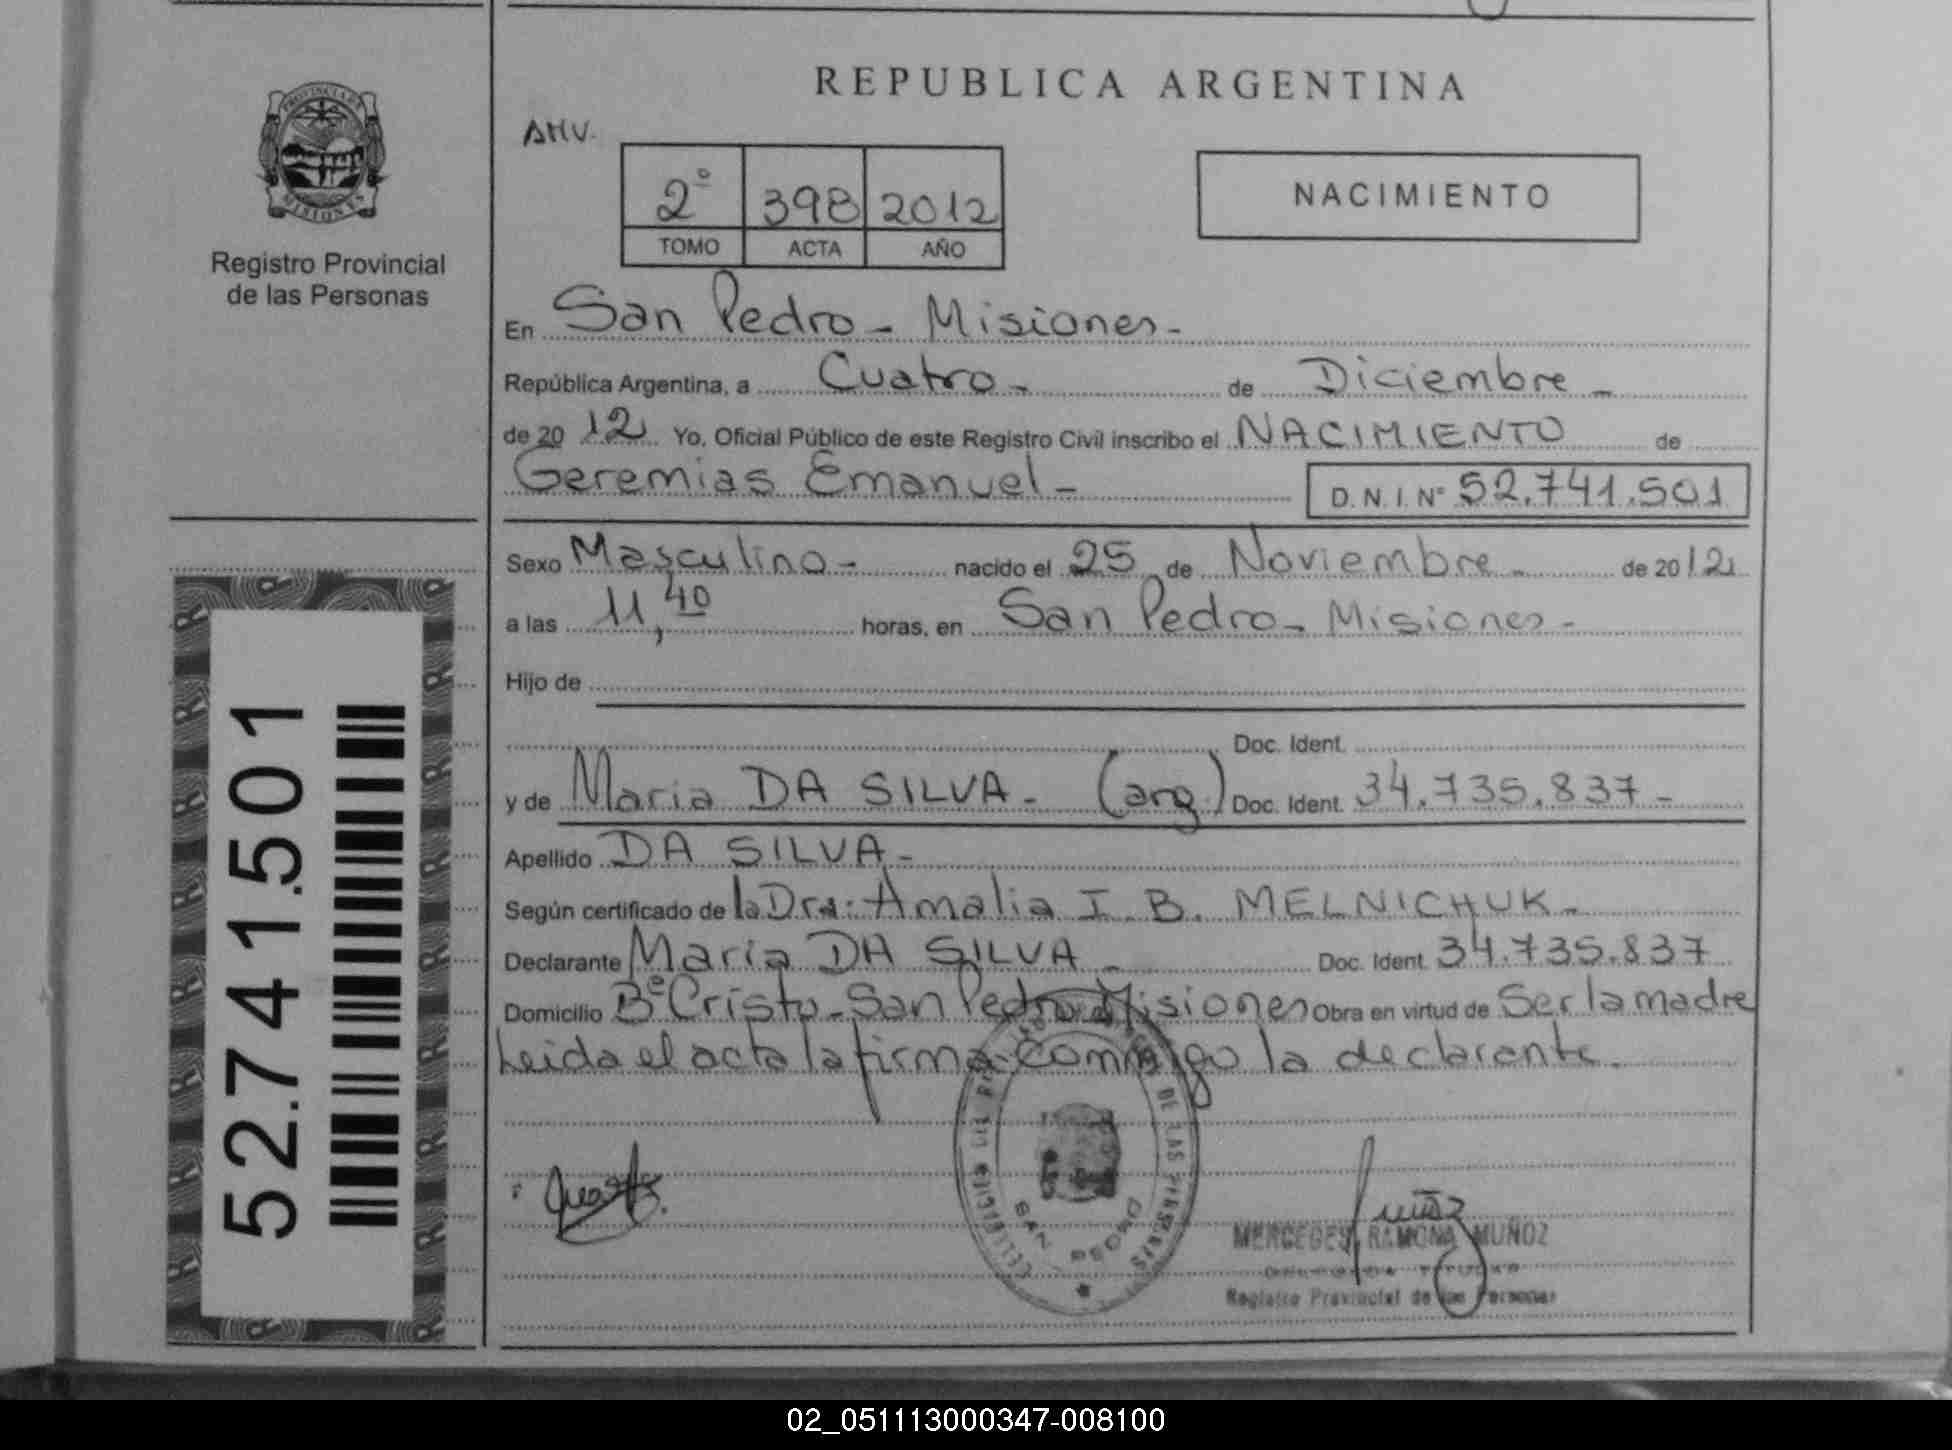 REPUBLICA ARGENTINA
AMV.
2º 398 2012
TOMO ACTA AÑO
NACIMIENTO
PROVINCIA DE
MISIONES
Registro Provincial
de las Personas
En San Pedro - Misiones -
República Argentina, a Cuatro - de Diciembre -
de 20 12 Yo, Oficial Público de este Registro Civil inscribo el NACIMIENTO de
Geremias Emanuel - D. N. I. Nº 52.741.501
Sexo Masculino - nacido el 25 de Noviembre - de 2012
a las 11,40 horas, en San Pedro - Misiones -
Hijo de
Doc. Ident.
y de Maria DA SILVA - (arg.) Doc. Ident. 34.735.837 -
Apellido DA SILVA -
Según certificado de la Dra: Amalia I. B. MELNICHUK -
Declarante Maria DA SILVA - Doc. Ident. 34.735.837
Domicilio Bº Cristo - San Pedro Misiones Obra en virtud de Ser la madre
Leida el acta la firma conmigo la declarante.
52.741.501
DE LAS PERSONAS
SAN PEDRO
MERCEDES RAMONA MUÑOZ
Registro Provincial de las Personas
02_051113000347-008100